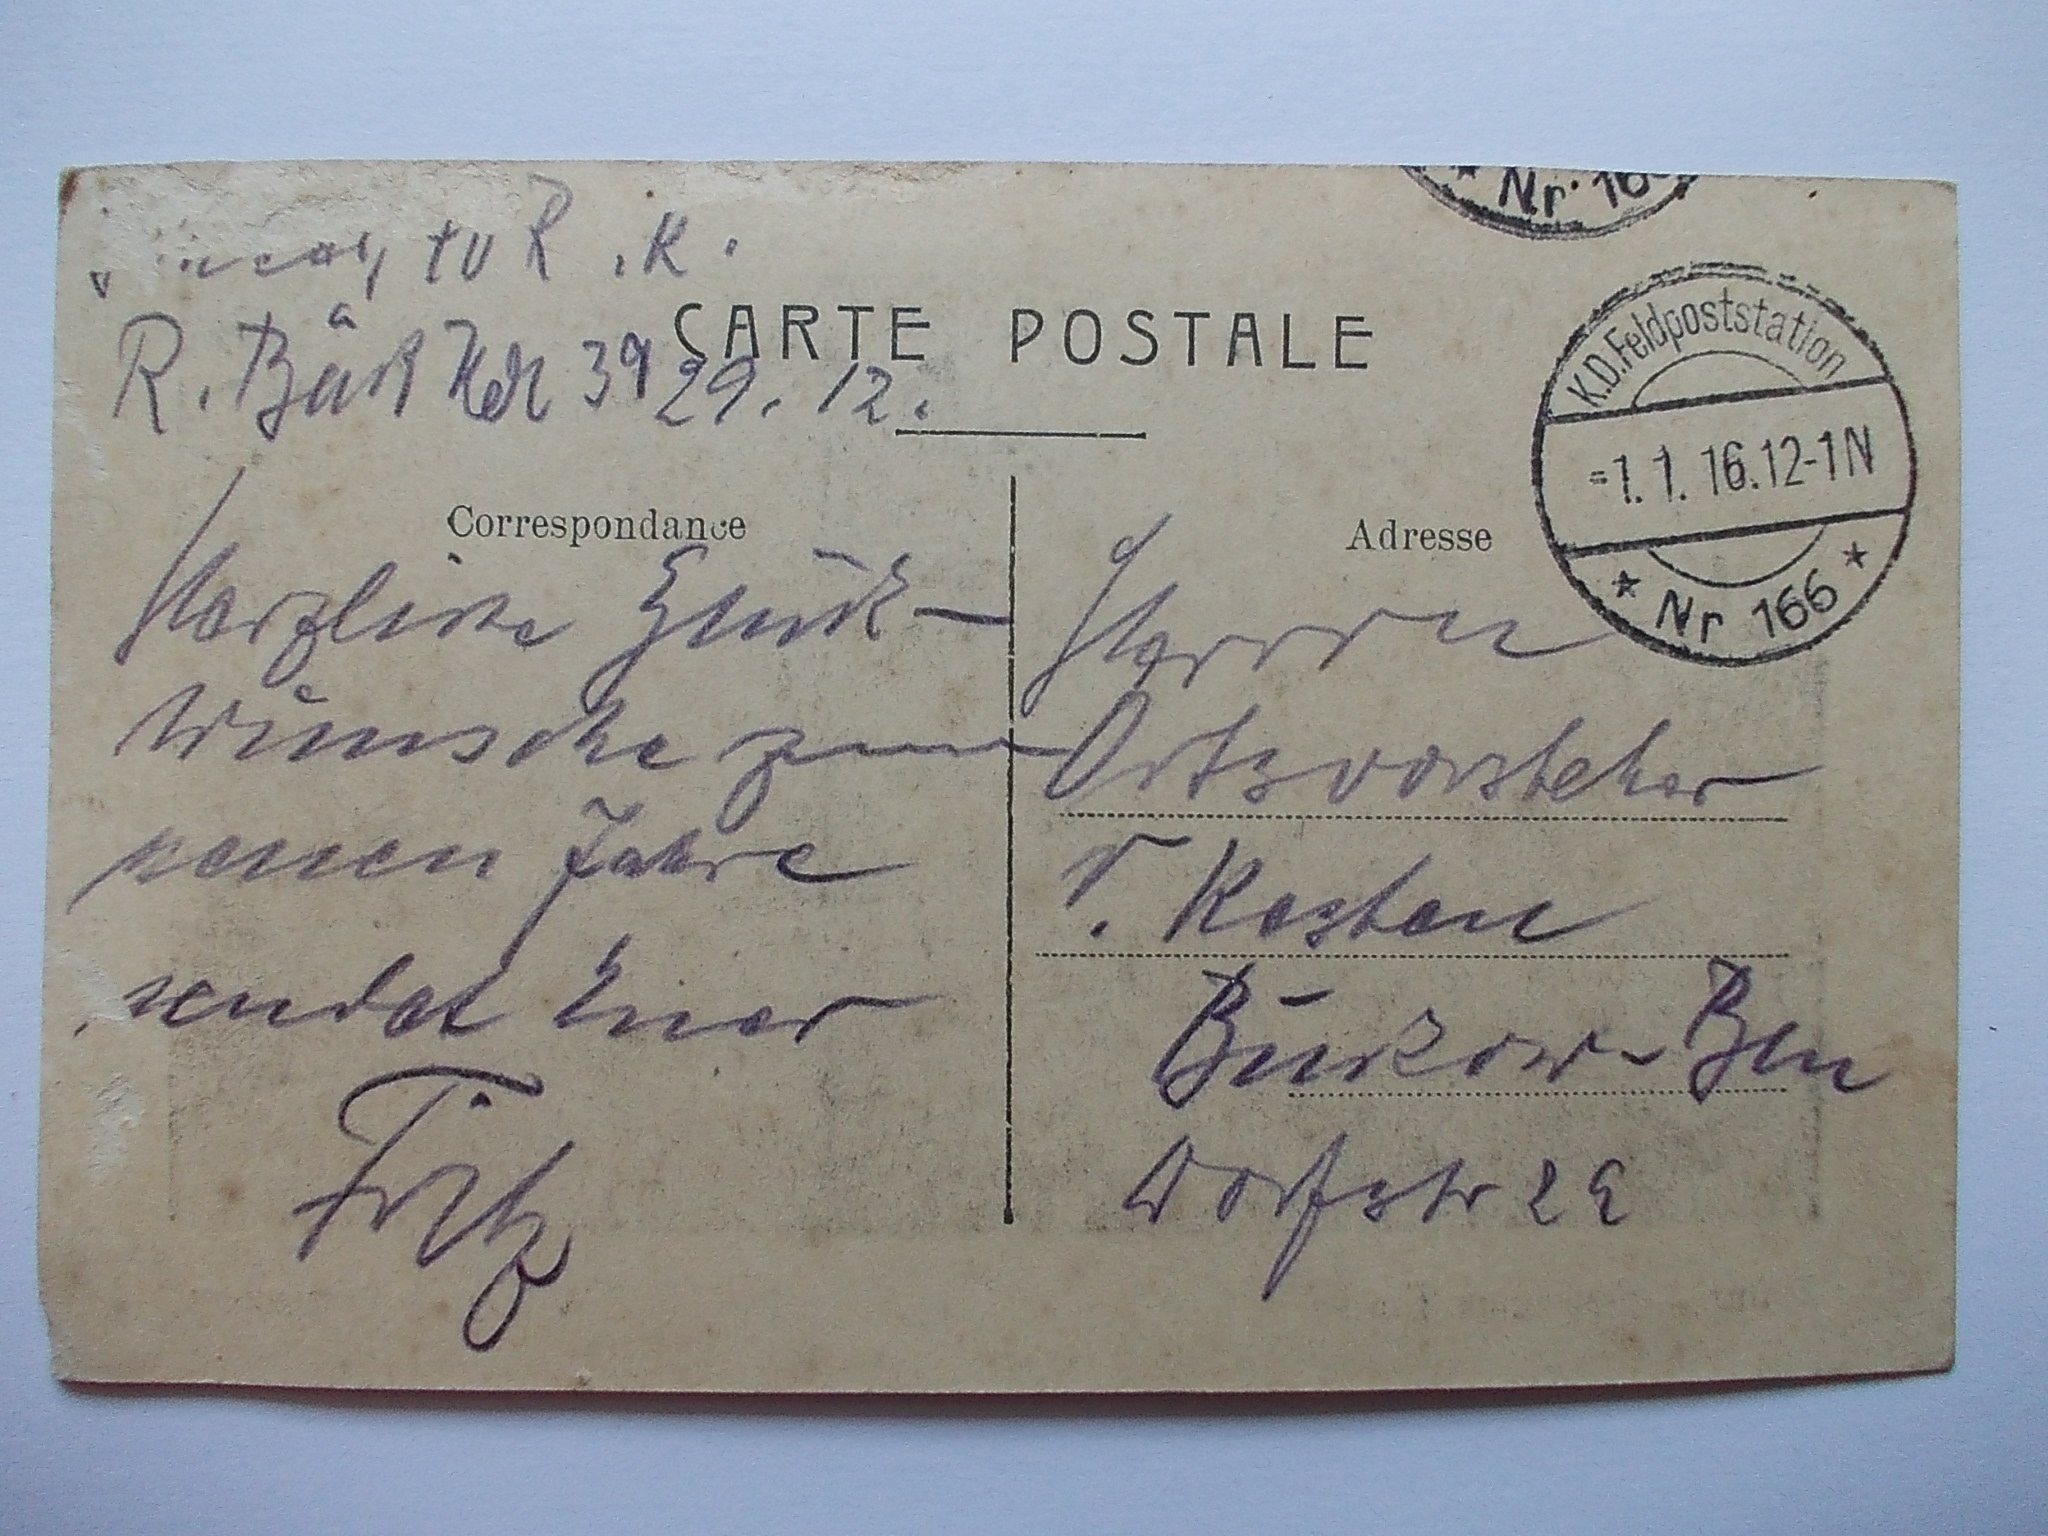 R. K.
R. 39 29. 12.
CARTE POSTALE
Nr. 16
K.D. Feldpoststation
-1. 1. 16. 12-1N
* Nr 166 *
Correspondance
Herzliche Glück-
wünsche zum
neuen Jahre
sendet Euer
Fritz
Adresse
Herrn
Ortsvorsteher
v. Kosten
Dorfstr